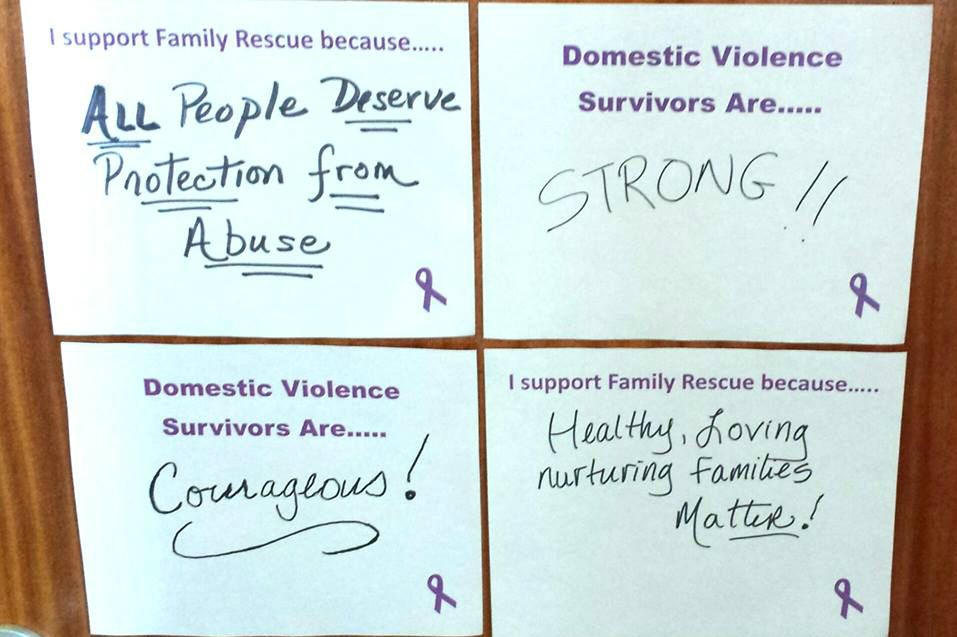 I support Family Rescue because.....
ALL People Deserve
Protection from
Abuse
Domestic Violence
Survivors Are.....
STRONG!!
Domestic Violence
Survivors Are.....
Courageous!
I support Family Rescue because.....
Healthy, Loving
nurturing families
Matter!